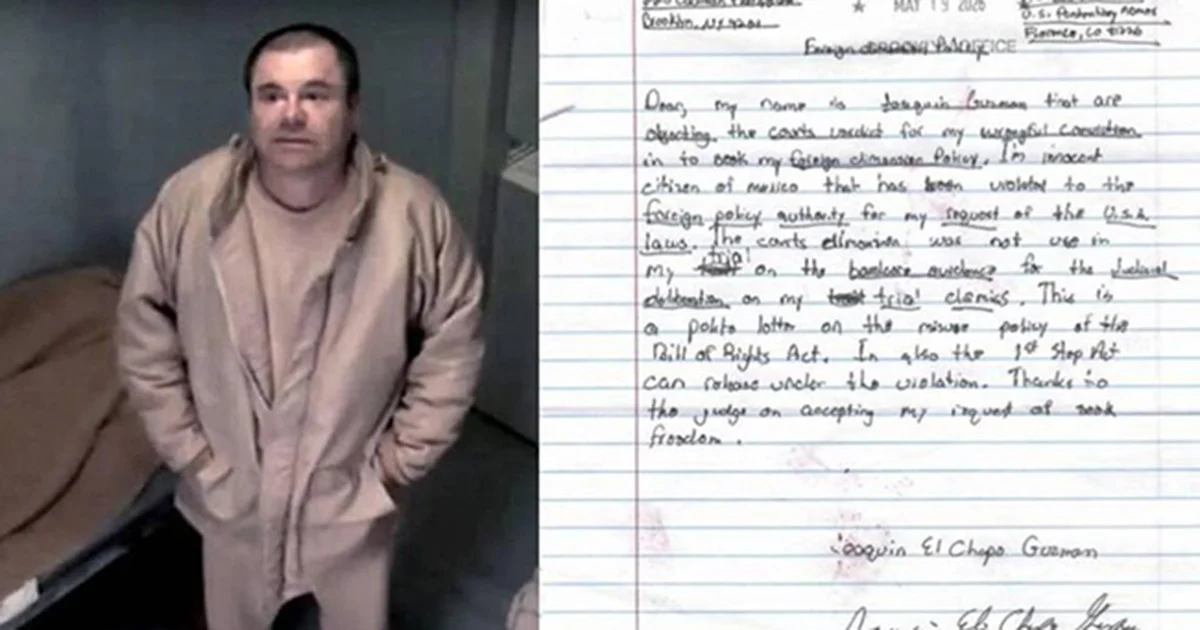 Brooklyn, NY 11201
MAY 19 2026
U.S. Penitentiary
Florence, CO 81226
Foreign Policy
OFFICE
Dear, my name is Joaquin Guzman that are
objecting the courts verdict for my wrongful conviction
in to seek my foreign dimension Policy. I'm innocent
citizen of mexico that has been violated to the
foreign policy authority for my request of the U.S.A
laws. The courts dimension was not use in
my trial on the evidence for the Judicial
deliberation on my trial This is
a polite letter on the misuse policy of the
Bill of Rights Act. In also the 1st Step Act
can release under the violation. Thanks to
the judge on accepting my request of seek
freedom.
Joaquin El Chapo Guzman
El Chapo